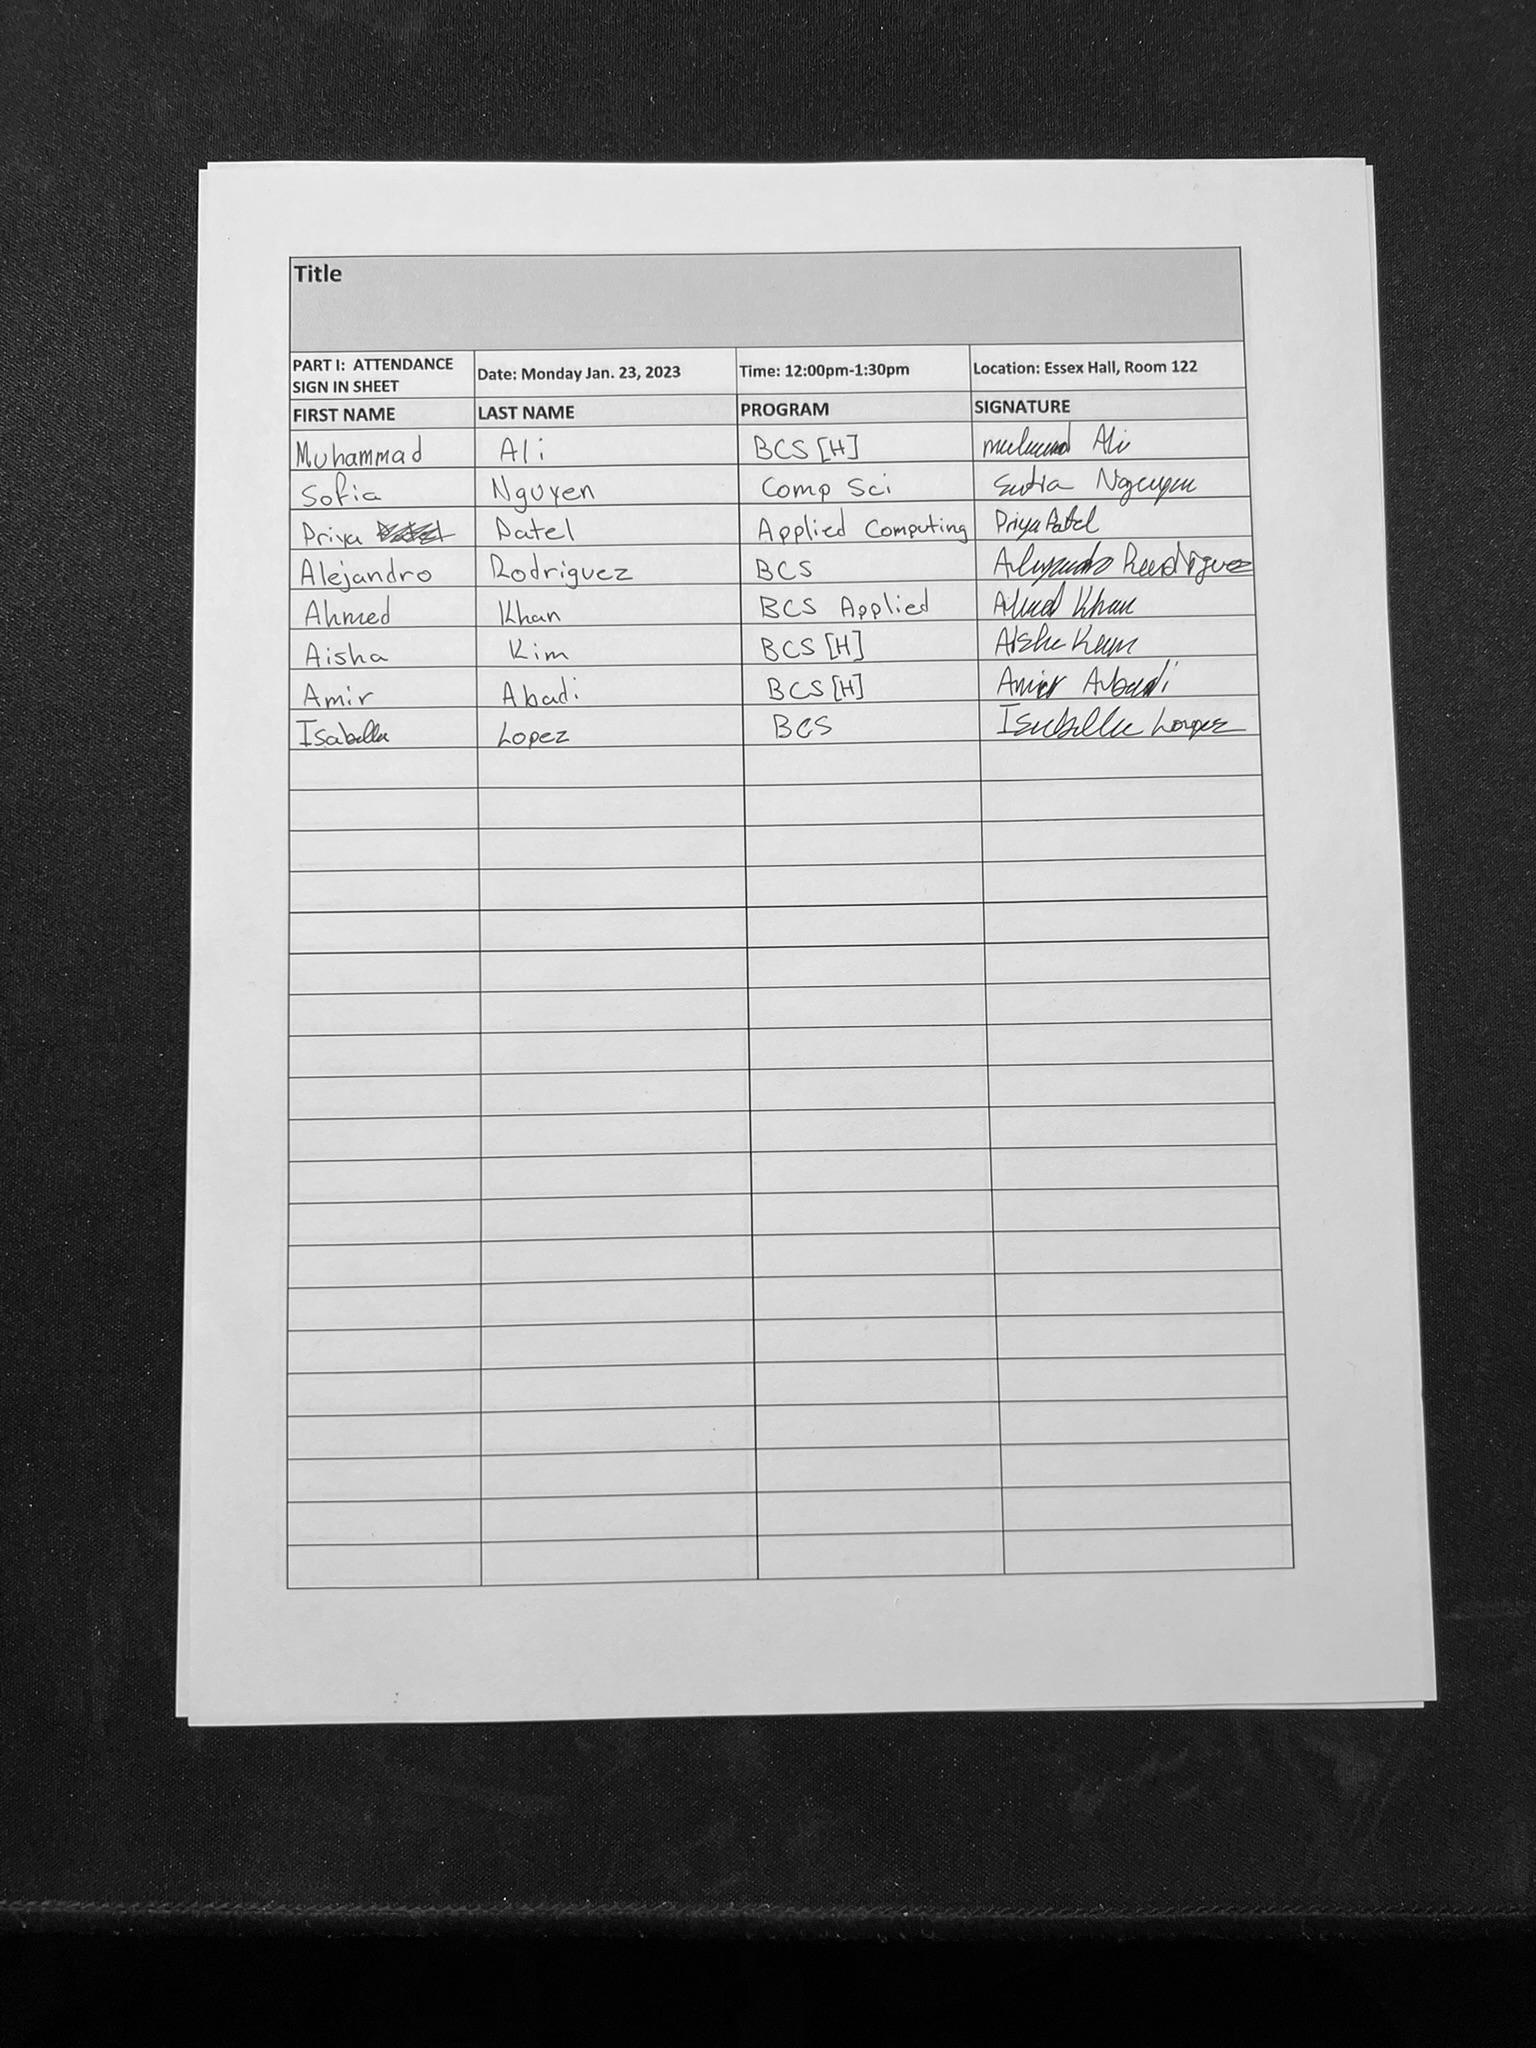 Title
PART I: ATTENDANCE SIGN IN SHEET Date: Monday Jan. 23, 2023 Time: 12:00pm-1:30pm Location: Essex Hall, Room 122
FIRST NAME LAST NAME PROGRAM SIGNATURE
Muhammad Ali BCS [H] Ali
Sofia Nguyen Comp Sci
Priya Patel Applied Computing Priya Patel
Alejandro Rodriguez BCS Alejandro Rodriguez
Ahmed Khan BCS Applied Ahmed Khan
Aisha Kim BCS [H] Aisha
Amir Abadi BCS [H] Amir Abadi
Isabella Lopez BCS Isabella Lopez